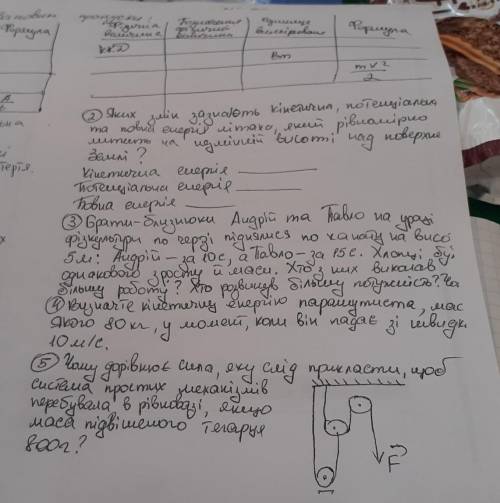 Формула
Фізична величина
Позначення фізичної величини
одиниця вимірювання
Формула
ККД
Вт
mv²
2
② Яких змін зазнають кінетична, потенціальна
та повна енергія літака, який рівномірно
летить на незмінній висоті над поверхне
Землі?
Кінетична енергія
Потенціальна енергія
Повна енергія
③ Брати-близнюки Андрій та Павло на уроці
фізкультури по черзі піднялися по канату на висо
5м: Андрій – за 10с, а Павло – за 15с. Хлопці бу
однакового зросту й маси. Хто з них виконав
більшу роботу? Хто розвинув більшу потужність? Чо
④ Визначте кінетичну енергію парашутиста, мас
якого 80 кг, у момент, коли він падає зі швидк
10 м/с.
⑤ Чому дорівнює сила, яку слід прикласти, щоб
система простих механізмів
перебувала в рівновазі, якщо
маса підвішеного тягарця
800г?
F